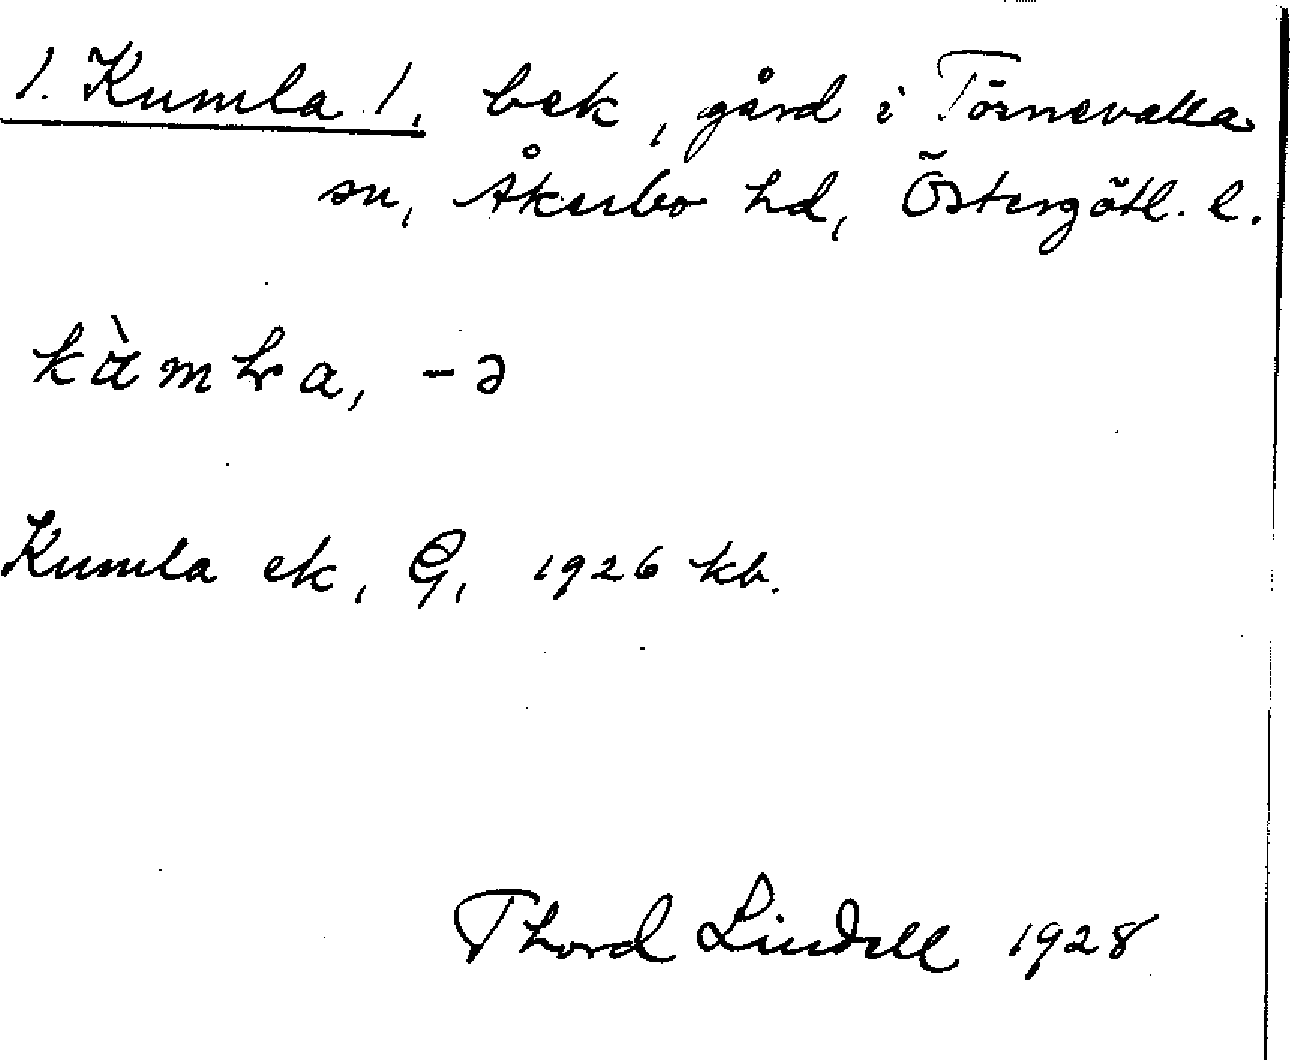 1. Kumla 1, bek, gård i Törnevalla
sn, Åkerbo hd, Östergötl. l.
-ə
Kumla ek, G, 1926 kb.
Thord Lindell 1928